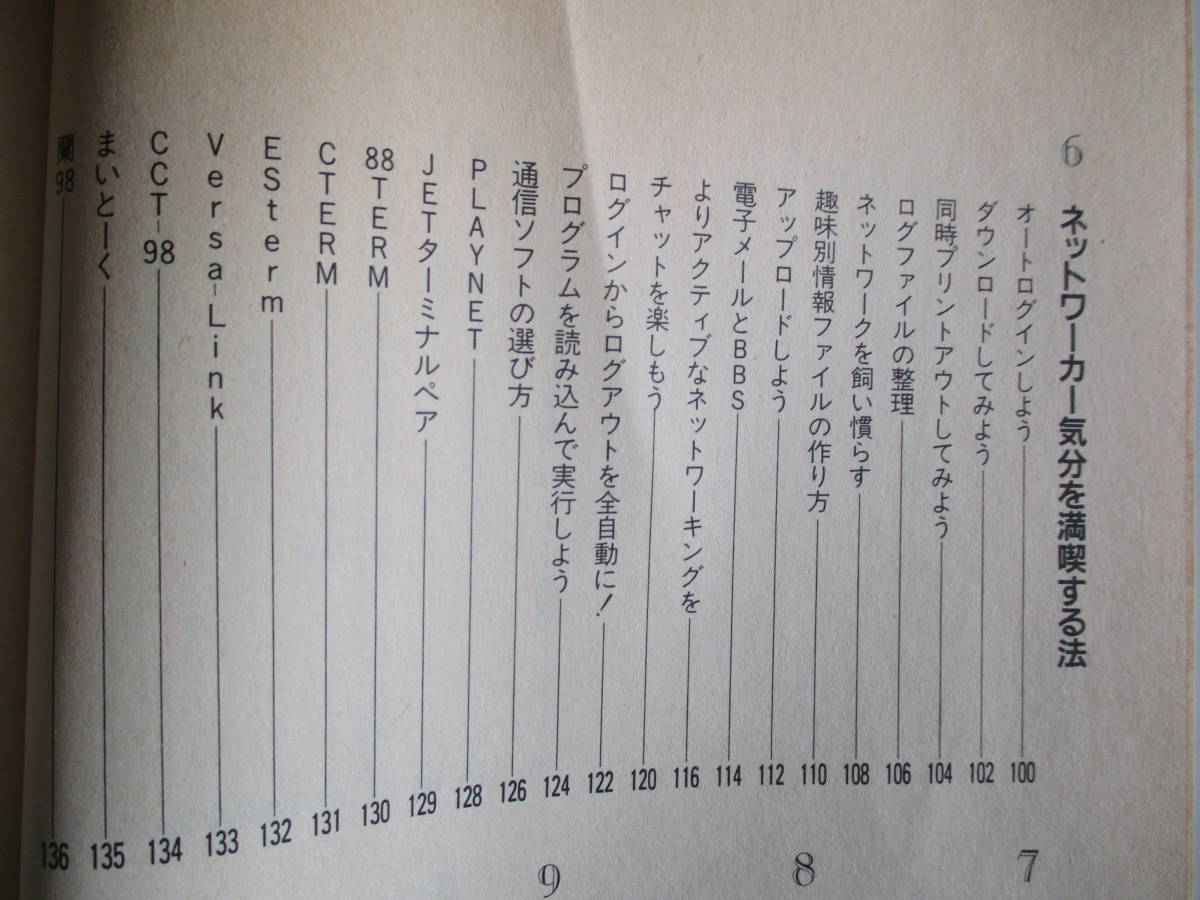 6 ネットワーカー気分を満喫する法
オートログインしよう 100
ダウンロードしてみよう 102
同時プリントアウトしてみよう 104
ログファイルの整理 106
ネットワークを飼い慣らす 108
趣味別情報ファイルの作り方 110
アップロードしよう 112
電子メールとBBS 114
よりアクティブなネットワーキングを 116
チャットを楽しもう 120
ログインからログアウトを全自動に! 122
プログラムを読み込んで実行しよう 124
通信ソフトの選び方 126
PLAYNET 128
JETターミナルペア 129
88TERM 130
CTERM 131
ESterm 132
Versa-Link 133
CCT-98 134
まいとーく 135
蘭98 136
7
8
9